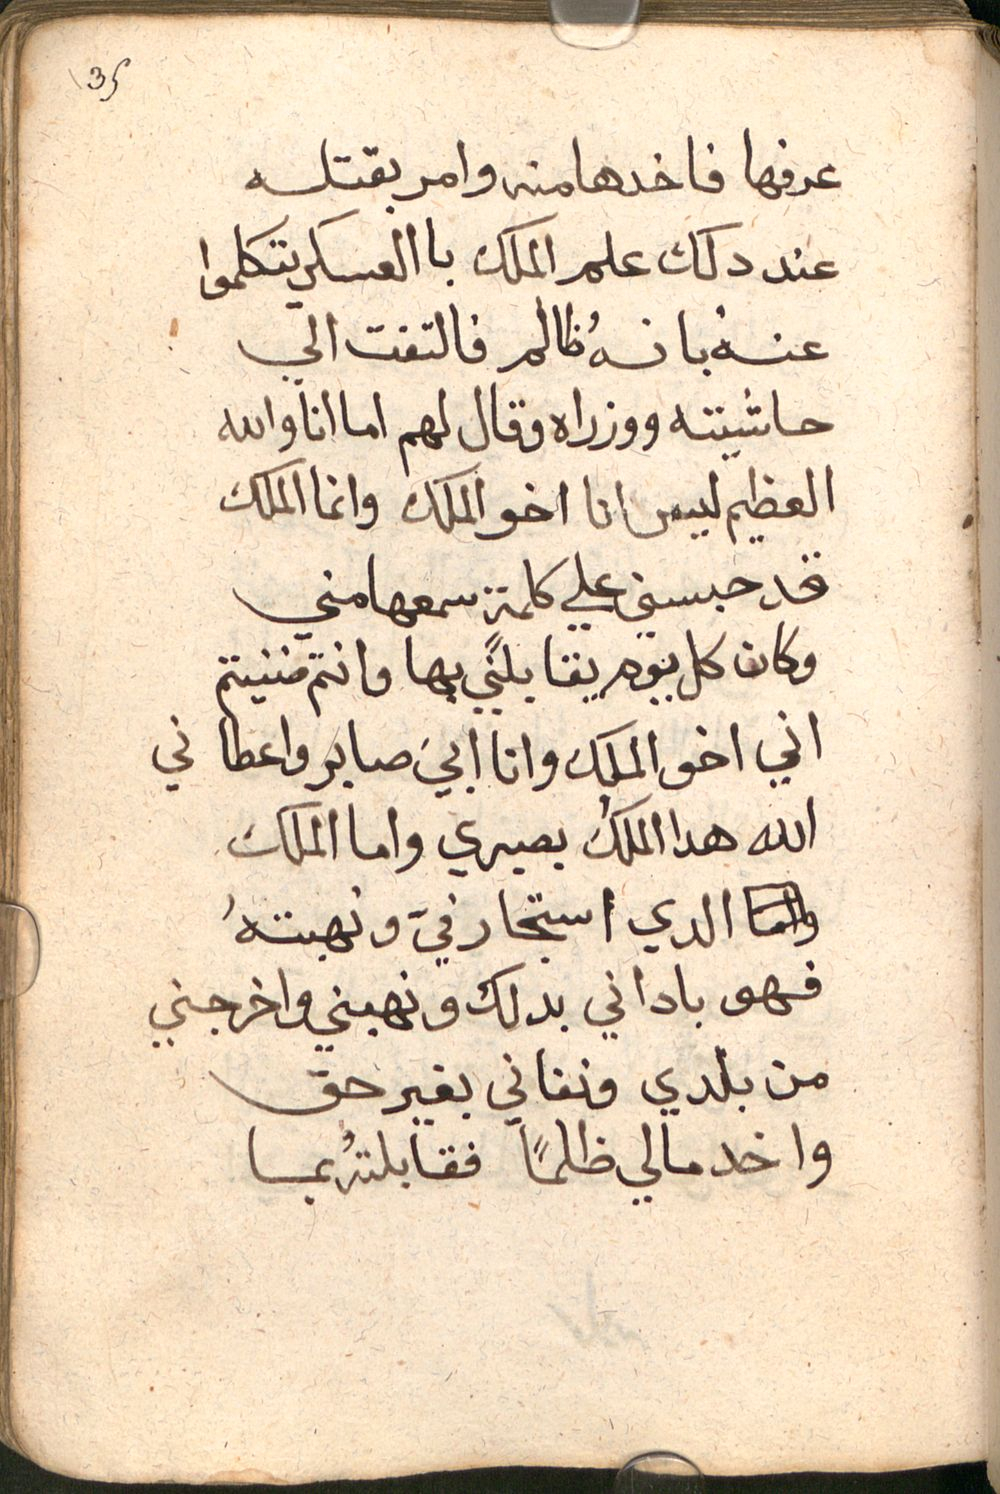 35
عرفها فاخدها منه وامر بقتله
عند دلك علم الملك باالعسكر يتكلموا
عنهُ بانهُ ظالم فالتفت الي
حاشيته ووزراه وقال لهم اما انا والله
العظيم ليس انا اخو الملك وانما الملك
قد حبسني علي كلمة سمعها مني
وكان كل يوم يقابلني بها وانتم
اني اخو الملك وانا ابي صابر واعطاني
الله هدا الملك بصبري واما الملك
الدي استجار فيّ ونهبتهُ
فهو باداني بدلك ونهبني واخرجني
من بلدي ونفاني بغير حق
واخد مالي ظلمًا فقابلتهُ بما